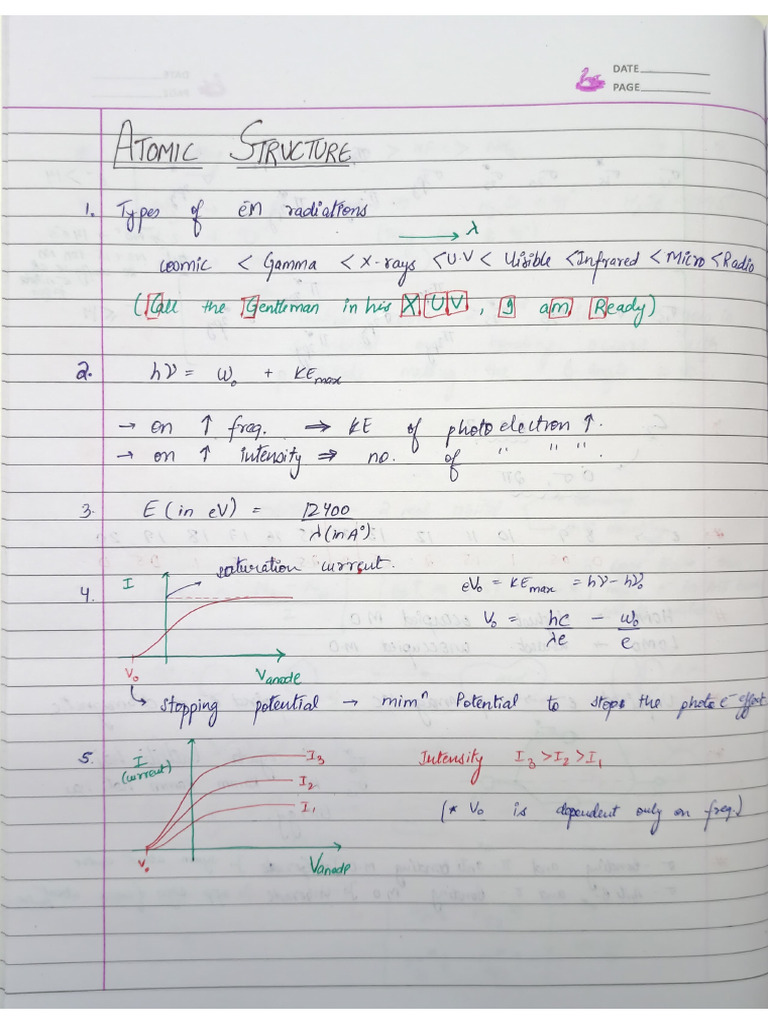 DATE
PAGE
ATOMIC STRUCTURE
1. Types of em radiations
λ
Cosmic < Gamma < X-rays < U.V < Visible < Infrared < Micro < Radio
(Call the Gentleman in his X U V , I am Ready)
2. hν = W₀ + KEmax
→ on ↑ freq. ⇒ KE of photo electron ↑.
→ on ↑ intensity ⇒ no. of " " ".
3. E (in eV) = 12400 / λ (in A°)
4. I saturation current.
eV₀ = KEmax = hν - hν₀
V₀ = hc/λe - W₀/e
V₀ Vanode
↳ stopping potential → mimⁿ Potential to stops the photo e⁻ effect
5. I (current) I₃ I₂ I₁
Intensity I₃ > I₂ > I₁
(* V₀ is dependent only on freq.)
V₀ Vanode